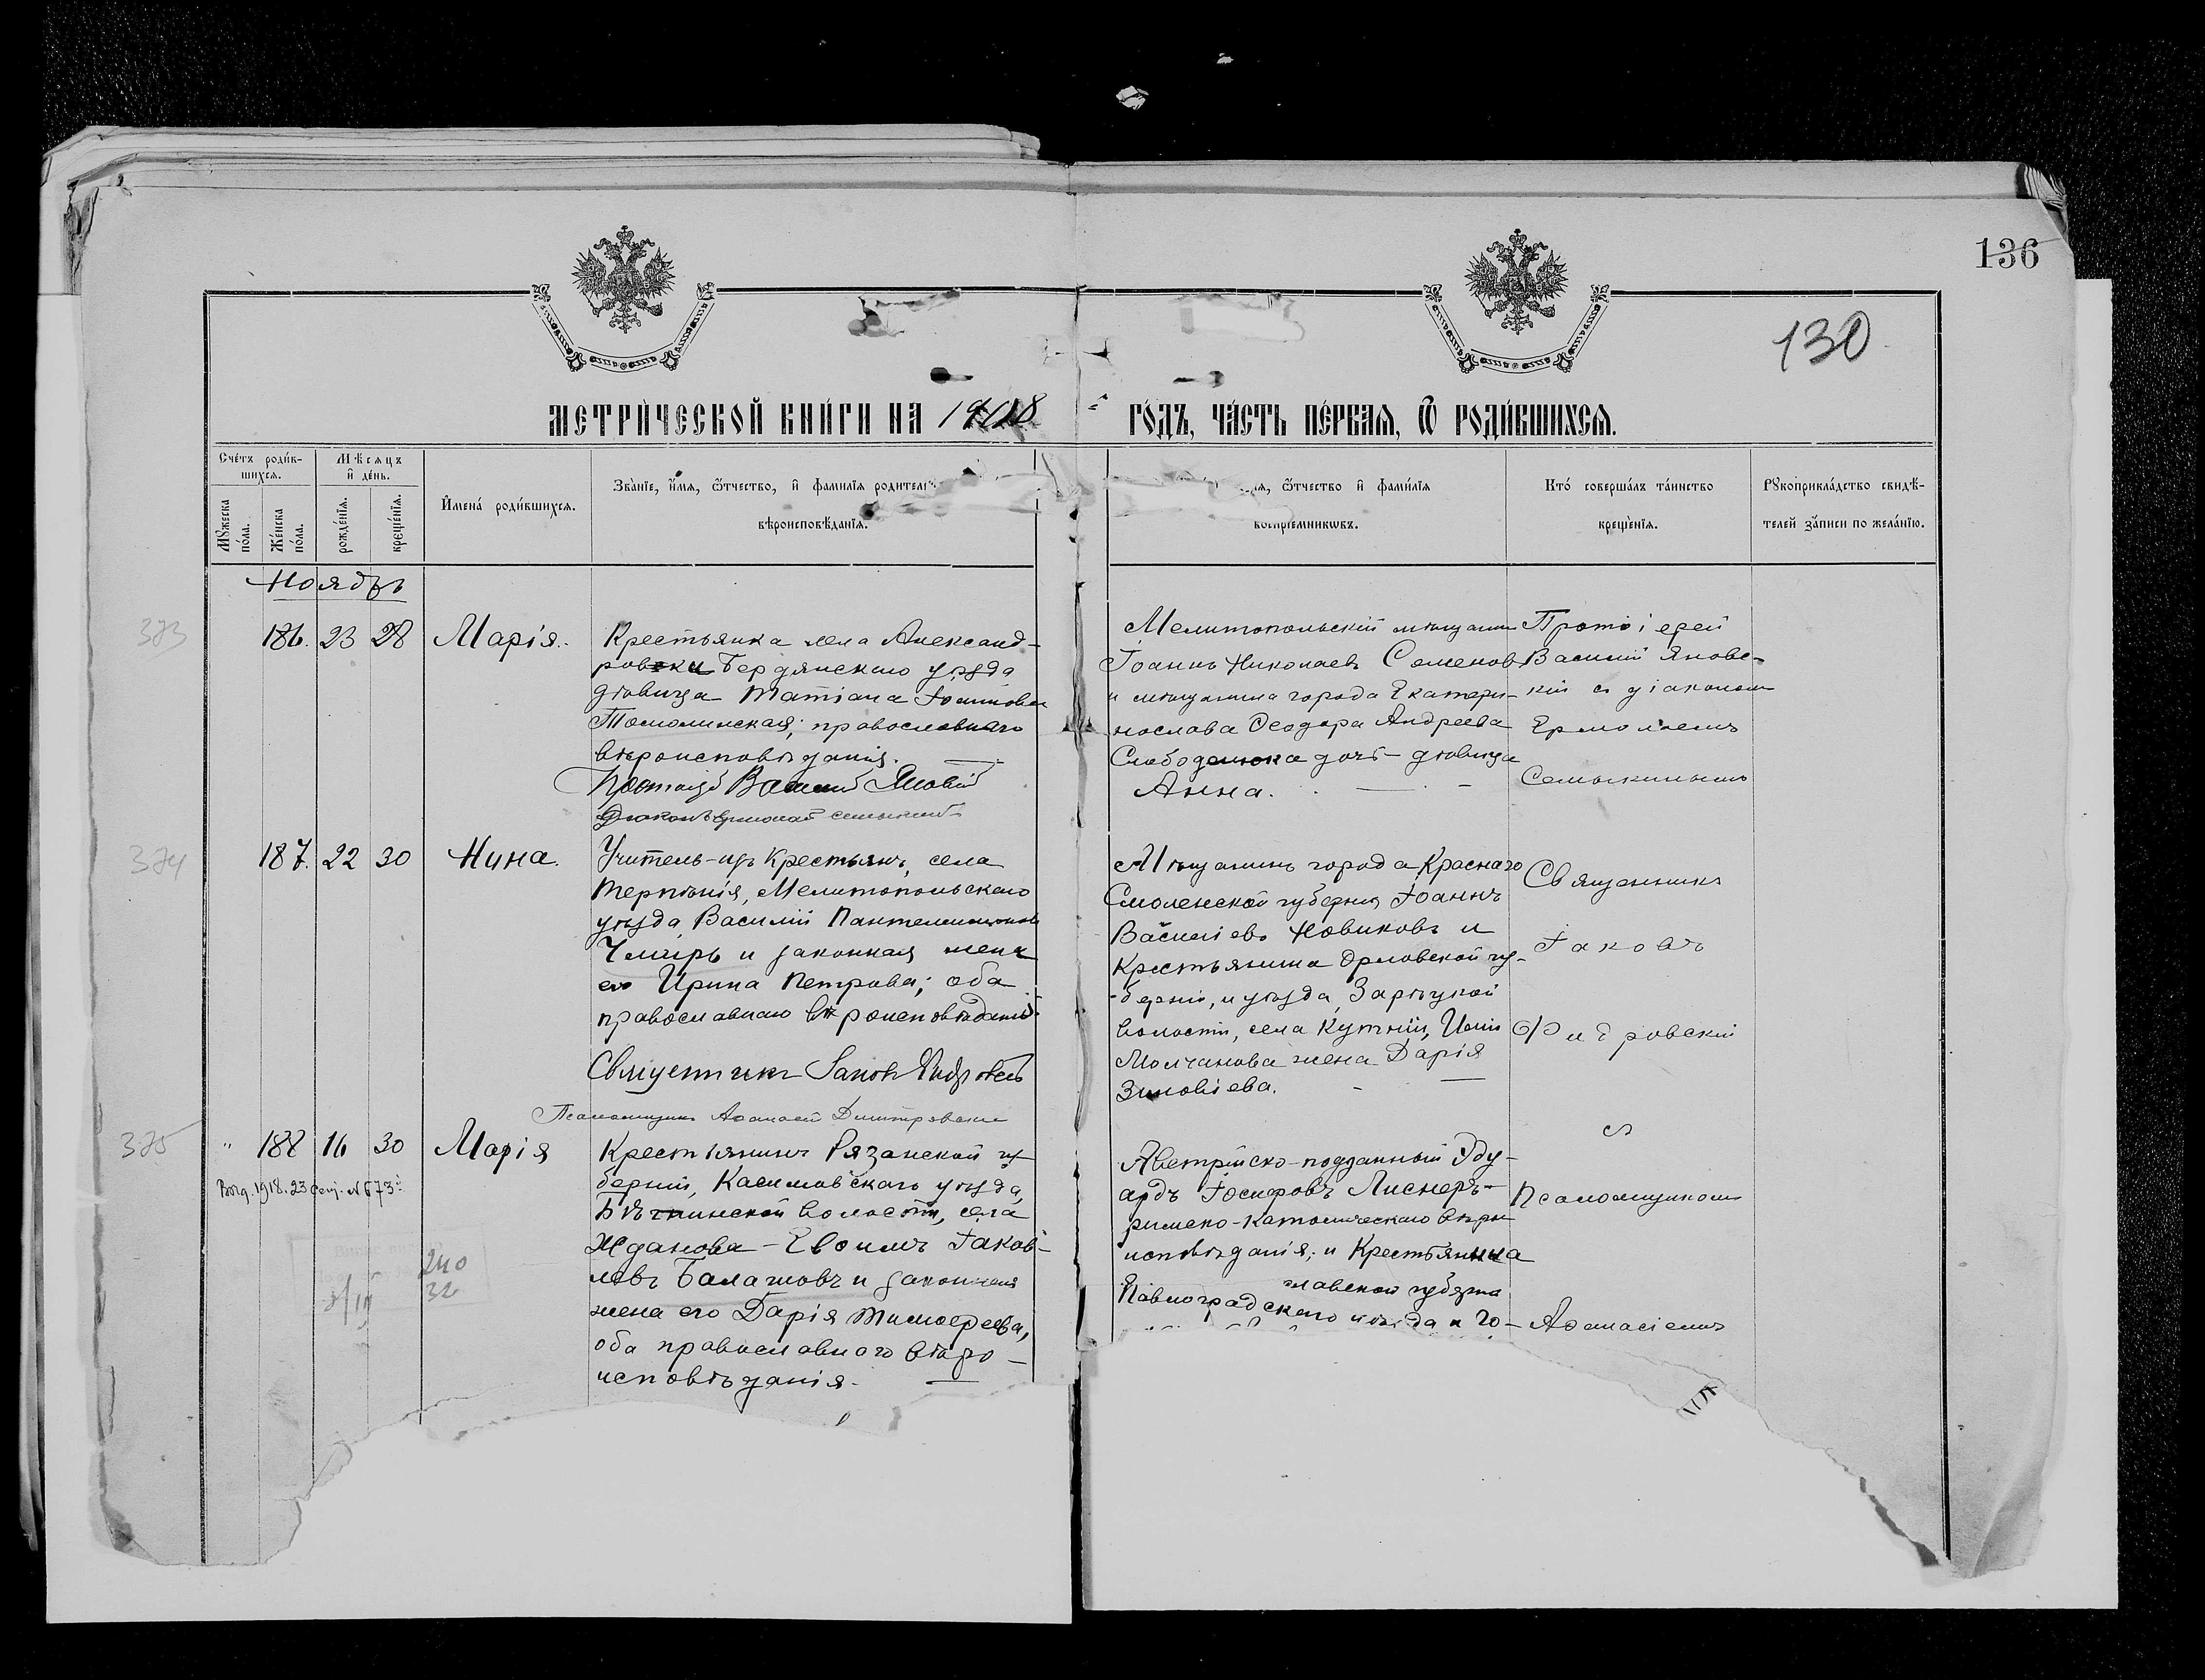 136
130
МЕТРИЧЕСКОЙ КНИГИ НА 1918 ГОДЪ, ЧАСТЬ ПЕРВАЯ, Ѿ РОДИВШИХСЯ.
Счетъ родив-
шихся.
Мѣсяцъ
и день.
Мужеска
пола.
Женска
пола.
рожденія.
крещенія.
Имена родившихся.
Званіе, имя, ѿтчество, и фамилія
вѣроисповѣданія.
ѿтчество и фамилія
воспріемниковъ.
Кто совершалъ таинство
крещенія.
Рукоприкладство свидѣ-
телей записи по желанію.
Ноябрь
373
186. 23 28 Марія.
Крестьянка села Александ-
ровки Бердянскаго уѣзда
дѣвица Татіана Іоаннова
православнаго
вѣроисповѣданія.
Мелитопольскій мѣщанин
Іоаннъ Николаевъ Семенов
и мѣщанина города Екатери-
нослава Ѳеодора Андреева
Слободенюка дочь - дѣвица
Анна.
Протоіерей
Василій Яновс-
кій съ діакономъ
Ермолаемъ
Семыкинымъ
374
187. 22 30 Нина.
Учитель-изъ крестьянъ, села
Терпѣнія, Мелитопольскаго
уѣзда, Василій Пантелеимонов
и законная жена
его Ирина Петрова; оба
православнаго вѣроисповѣданія.
Священникъ Іаковъ
Псаломщикъ Аѳанасій Димитровскій
Мѣщанинъ города Краснаго
Смоленской губерніи Іоаннъ
Василіевъ Новиковъ и
крестьянина Орловской гу-
берніи, и уѣзда,
волости, села
Молчанова жена Дарія
Зиновіева.
Священникъ
Іаковъ
375
" 188 16 30 Марія
1918. 23 № 673
240
32
Крестьянинъ Рязанской гу-
берніи, Касимовскаго уѣзда,
волости, села
Жданова - Евѳимъ Іаков-
левъ Балашовъ и законная
жена его Дарія Тимоѳеева,
оба православнаго вѣро-
исповѣданія.
Австрійско-подданный Эду-
ардъ Іосифовъ Лиснеръ-
римско-католическаго вѣро
исповѣданія; и крестьянина
славской губерніи
Павлоградскаго уѣзда
съ
Псаломщикомъ
Аѳанасіемъ